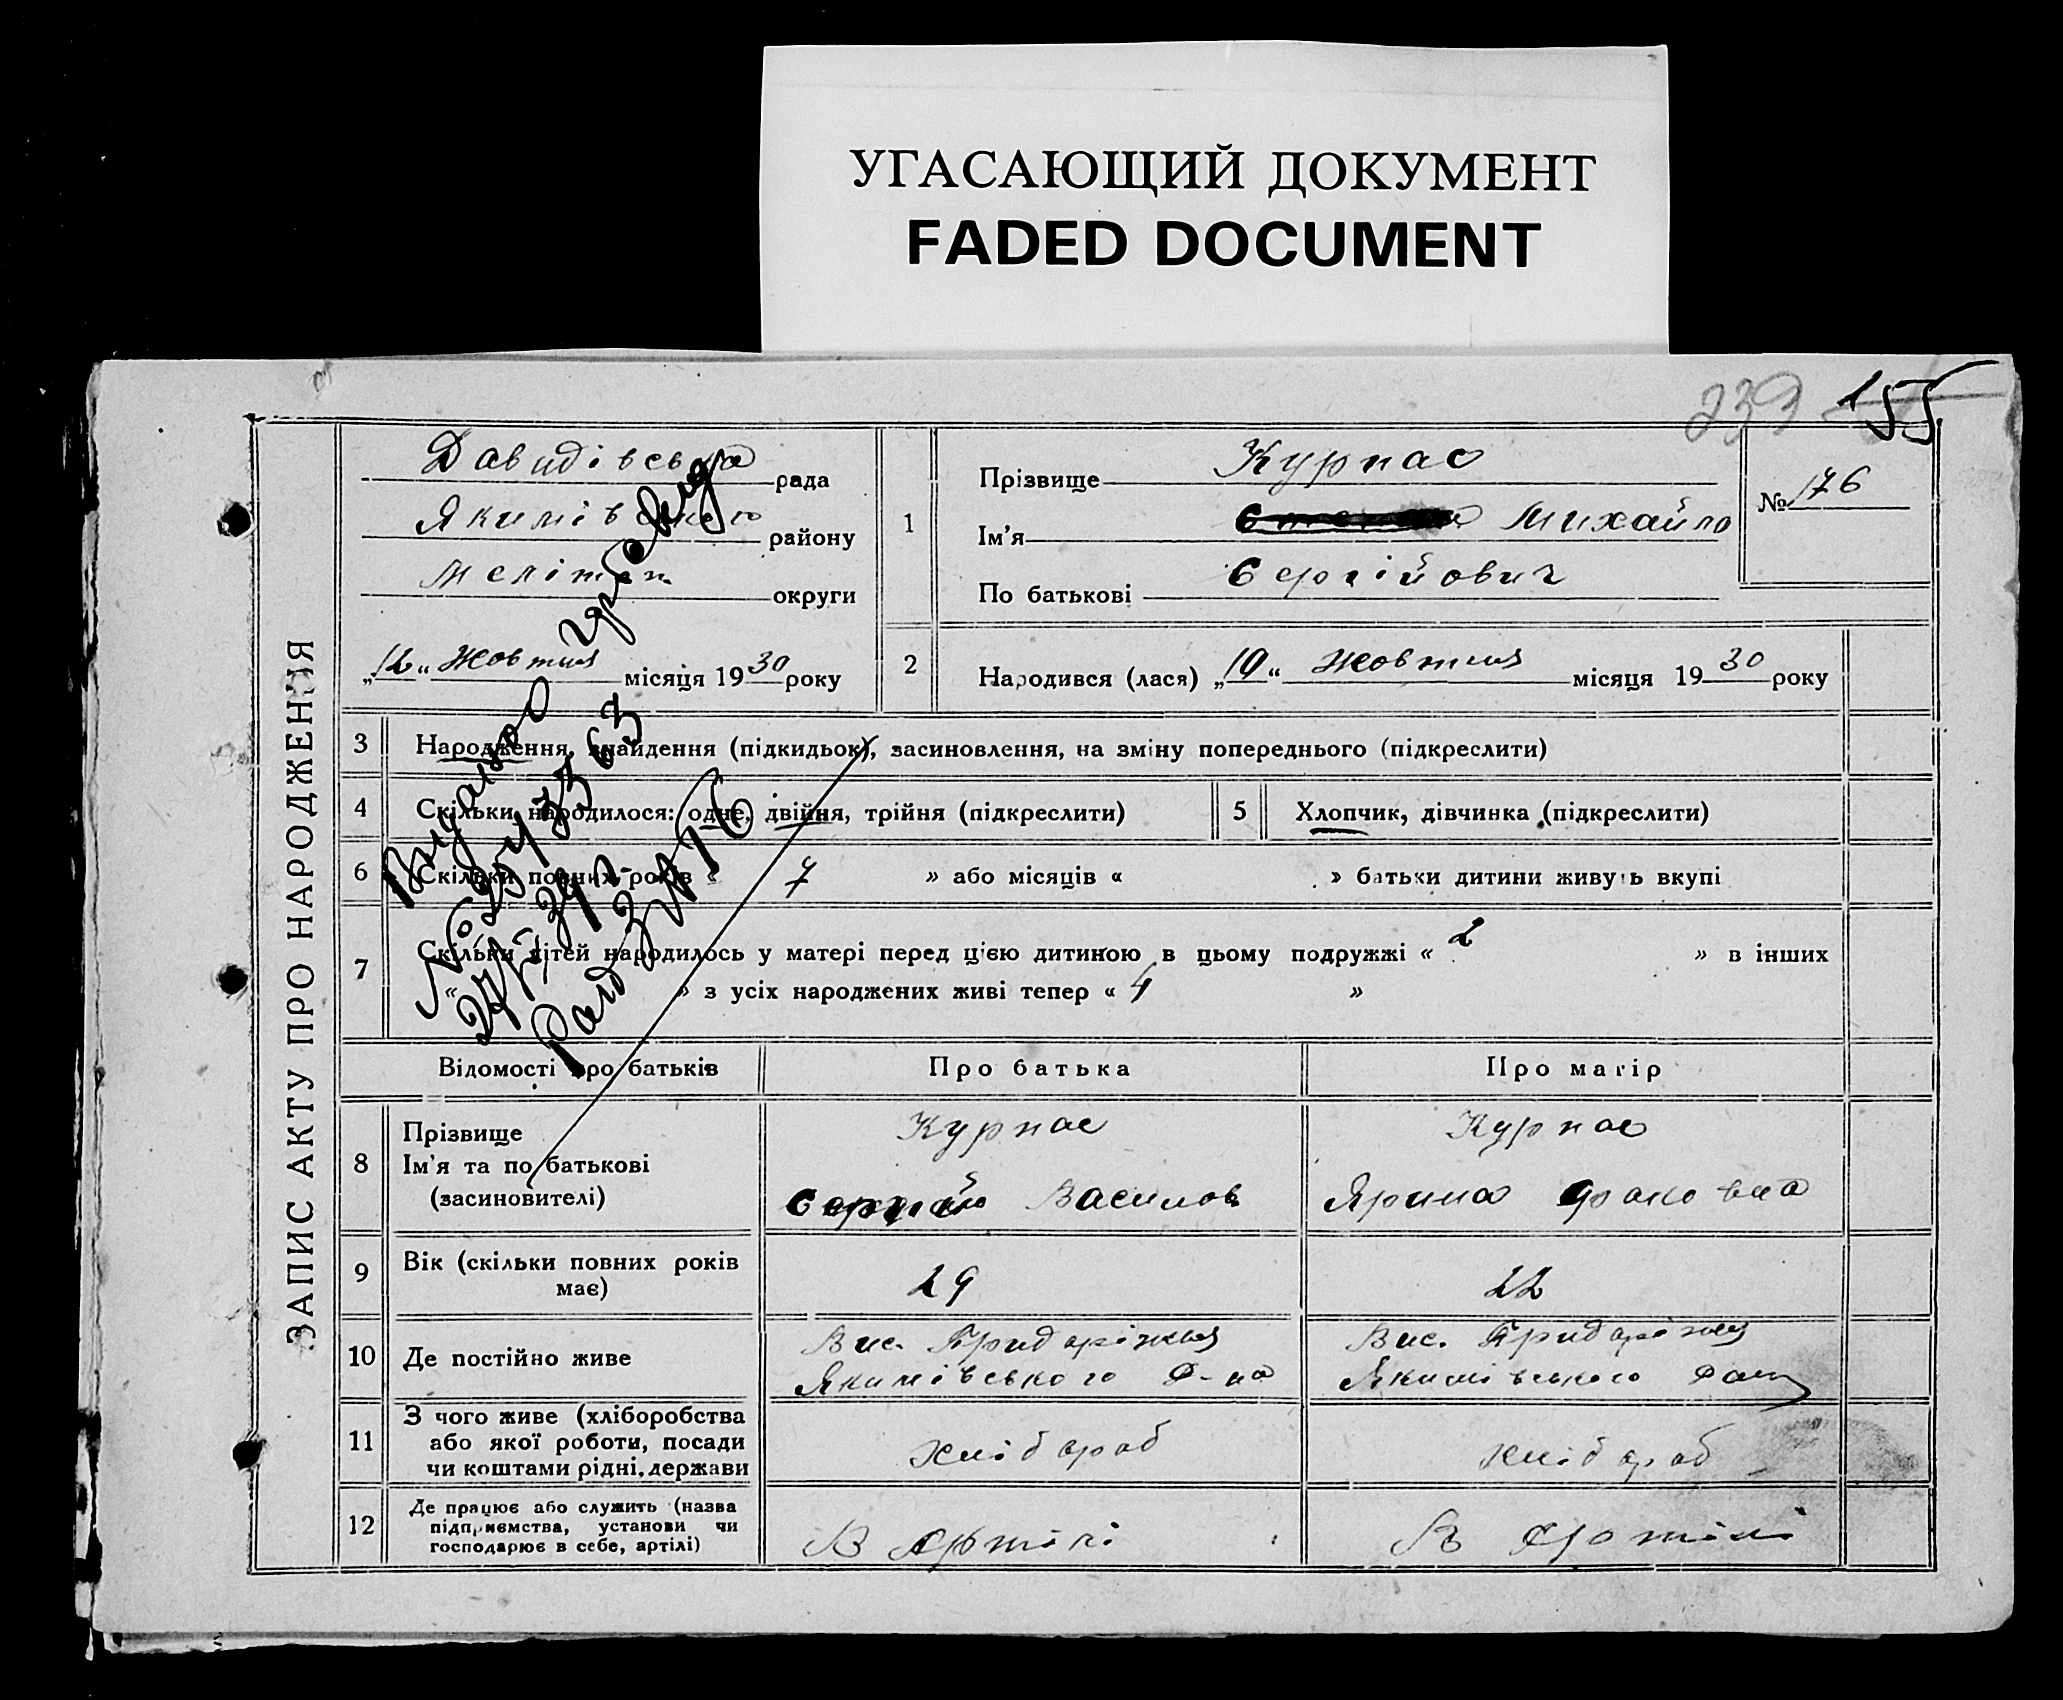 УГАСАЮЩИЙ ДОКУМЕНТ
FADED DOCUMENT
239 155
ЗАПИС АКТУ ПРО НАРОДЖЕННЯ
Давидівська рада
Якимівського району
Мелітоп округи
„12“ Жовтня місяця 1930 року
1
Прізвище Курпас
Ім'я Михайло
По батькові Сергійович
№ 176
2
Народився (лася) „10“ Жовтня місяця 1930 року
3 Народження, знайдення (підкидьок), засиновлення, на зміну попереднього (підкреслити)
4 Скільки народилося: одне, двійня, трійня (підкреслити)
5 Хлопчик, дівчинка (підкреслити)
6 Скільки повних років « 7 » або місяців « » батьки дитини живуть вкупі
7 Скільки дітей народилось у матері перед цією дитиною в цьому подружжі « 2 » в інших
« » з усіх народжених живі тепер « 4 »
Відомості про батьків
Про батька
Про матір
8 Прізвище
Ім'я та по батькові
(засиновителі)
Курпас
Сергій Василов
Курпас
Ярина
9 Вік (скільки повних років
має)
29
22
10 Де постійно живе
Вис. Придоріжня
Якимівського Р-на
Вис. Придоріжня
Якимівського
11 З чого живе (хліборобства
або якої роботи, посади
чи коштами рідні, держави
хлібороб
хлібороб
12 Де працює або служить (назва
підприємства, установи чи
господарює в себе, артілі)
В Артілі
В Артілі